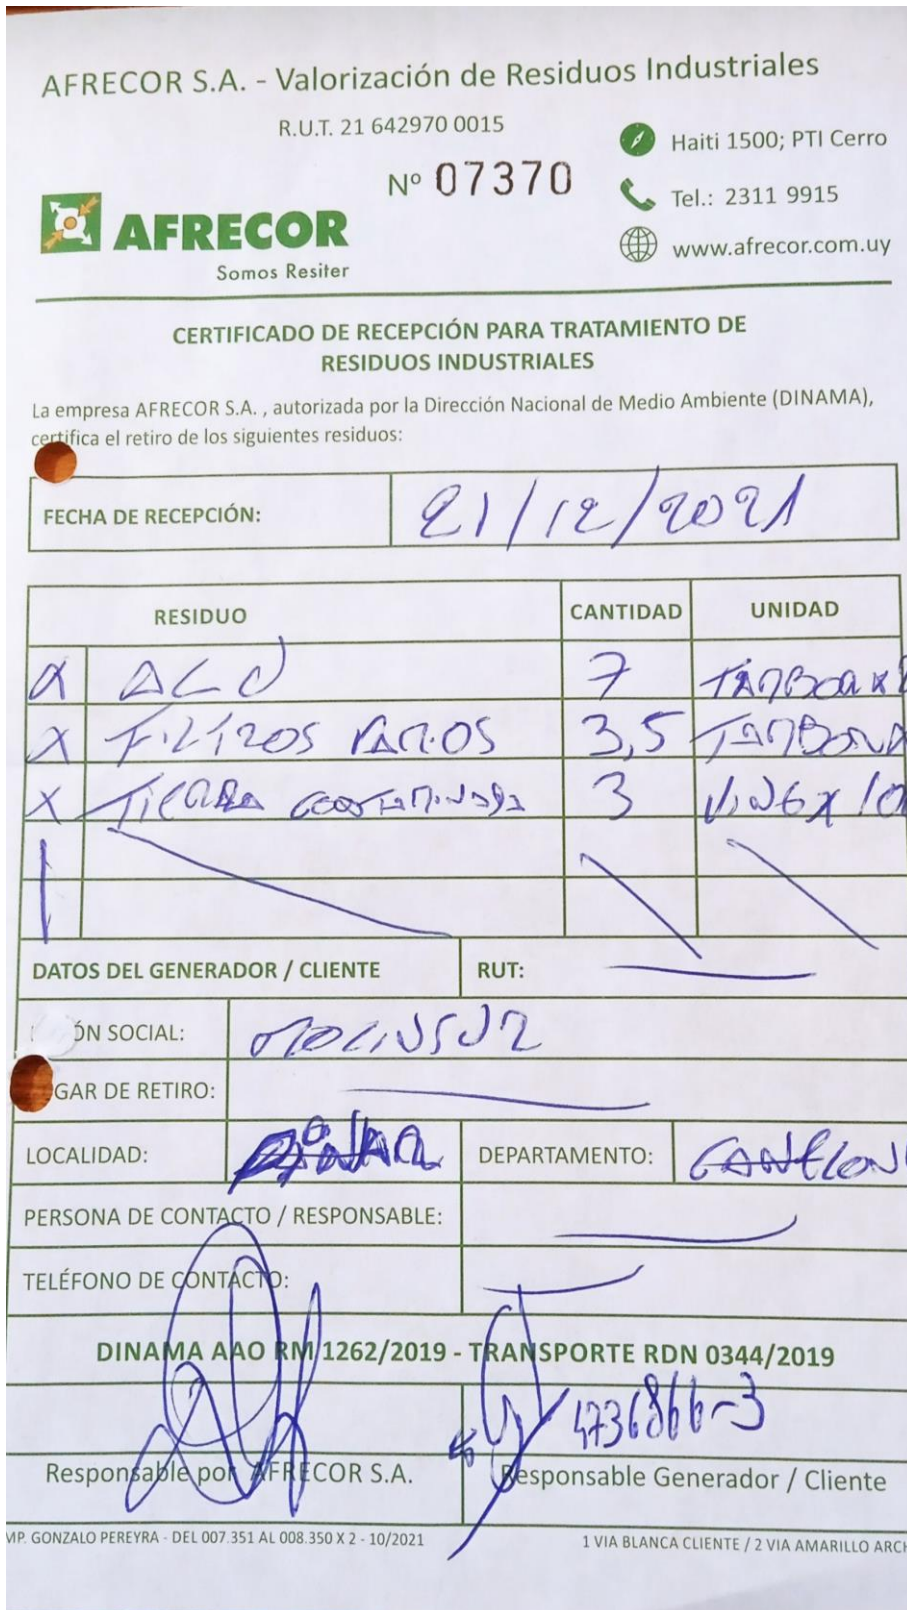 AFRECOR S.A. - Valorización de Residuos Industriales
R.U.T. 21 642970 0015
Nº 07370
Haiti 1500; PTI Cerro
Tel.: 2311 9915
www.afrecor.com.uy
AFRECOR
Somos Resiter
CERTIFICADO DE RECEPCIÓN PARA TRATAMIENTO DE
RESIDUOS INDUSTRIALES
La empresa AFRECOR S.A. , autorizada por la Dirección Nacional de Medio Ambiente (DINAMA),
certifica el retiro de los siguientes residuos:
FECHA DE RECEPCIÓN: 21/12/2021
RESIDUO CANTIDAD UNIDAD
X ALU 7 TAMBOR X
X FILTROS VARIOS 3,5 TAMBOR X
X TIERRA CONTAMINADA 3 X 10
DATOS DEL GENERADOR / CLIENTE RUT:
ÓN SOCIAL:
GAR DE RETIRO:
LOCALIDAD: PINAR DEPARTAMENTO: CANELON
PERSONA DE CONTACTO / RESPONSABLE:
TELÉFONO DE CONTACTO:
DINAMA AAO RM 1262/2019 - TRANSPORTE RDN 0344/2019
4736866-3
Responsable por AFRECOR S.A. Responsable Generador / Cliente
MP. GONZALO PEREYRA - DEL 007.351 AL 008.350 X 2 - 10/2021 1 VIA BLANCA CLIENTE / 2 VIA AMARILLO ARCH